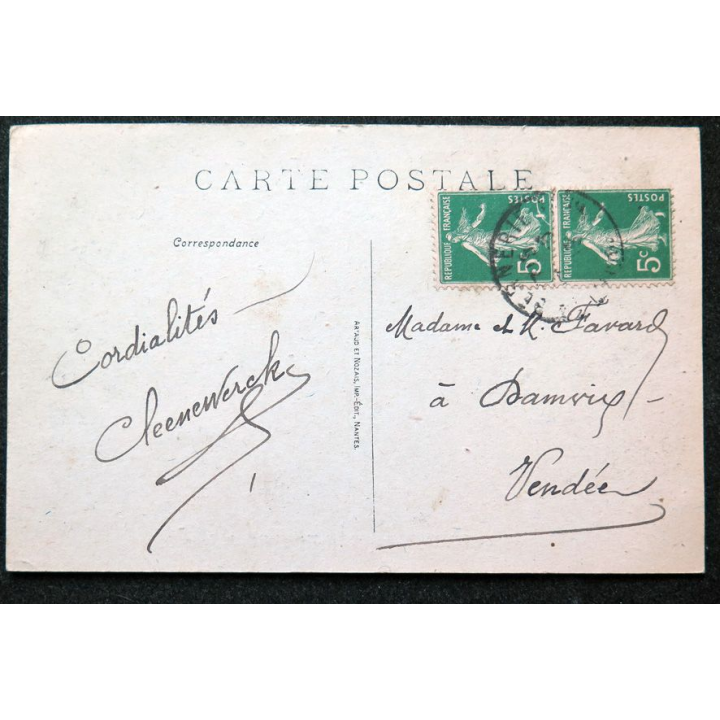 CARTE POSTALE
Correspondance
RÉPUBLIQUE FRANÇAISE
POSTES
5
RÉPUBLIQUE FRANÇAISE
POSTES
5c
Cordialités
Cleenewerck
ARTAUD ET NOZAIS, IMP.-ÉDIT., NANTES.
Madame et M. Favard
à Damvix
Vendée